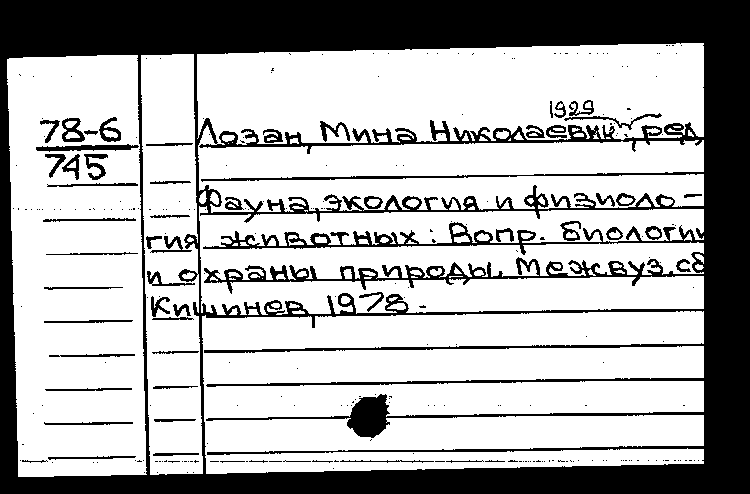 1929
78-6 Лозан, Мина Николаевич, ред.
745
Фауна, экология и физиоло-
гия животных: Вопр. биологии
и охраны природы. Межвуз. сб
Кишинев, 1978.-